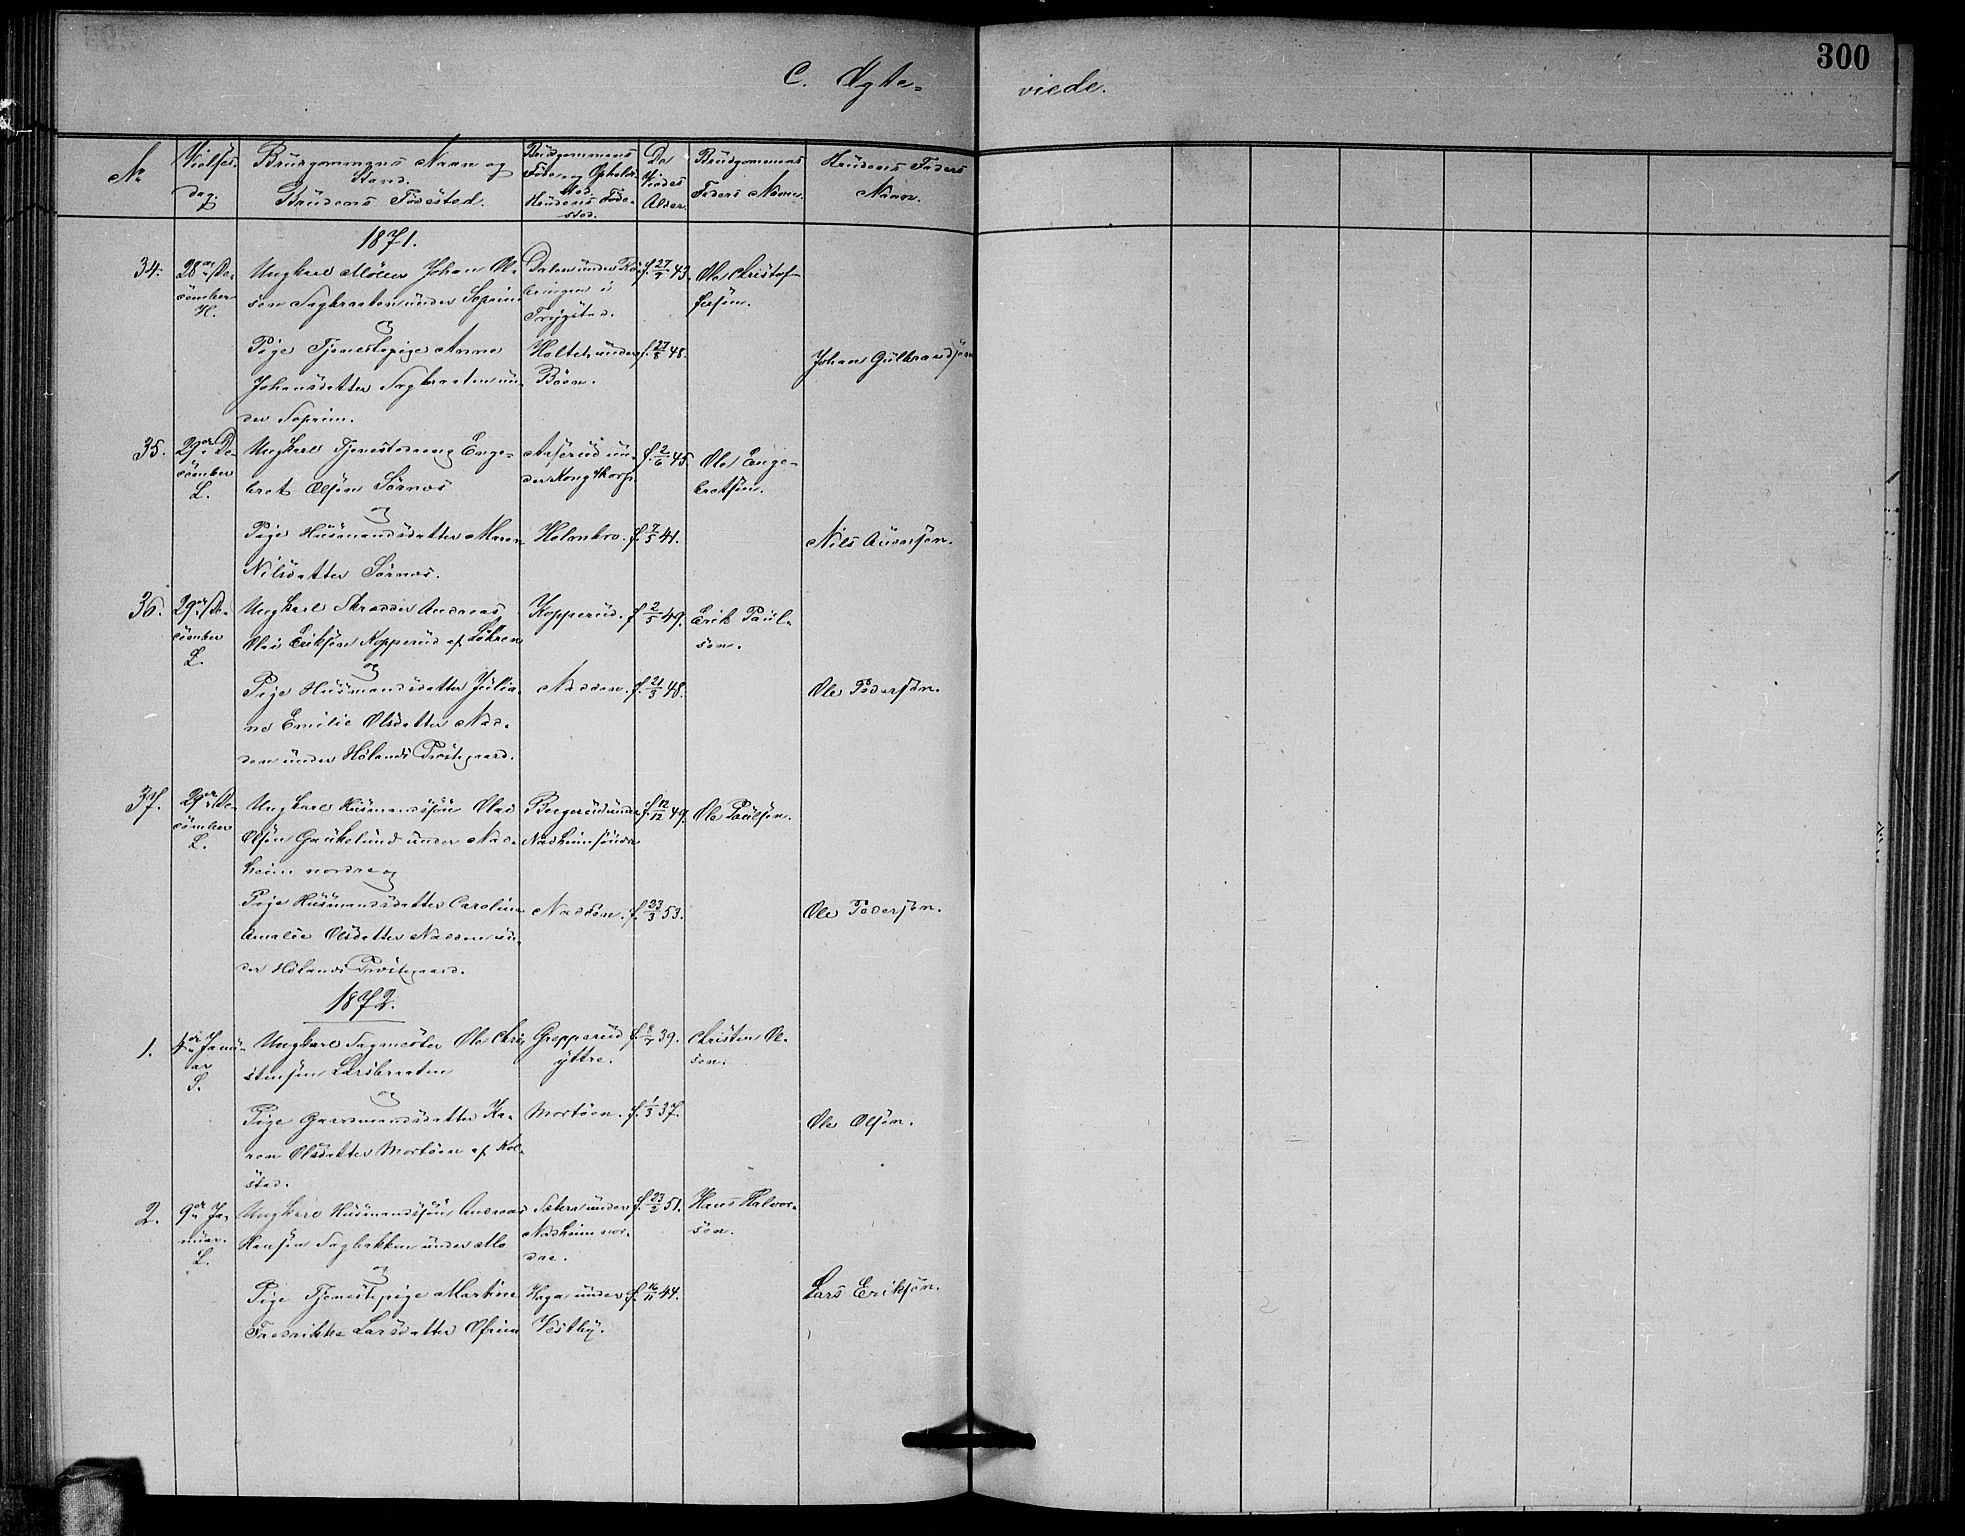 300
C. Ægte-
viede.
No
Vielses-
dag.
Brudgommens Navn og
Stand.
Brudens Fødested.
Brudgommens
Føde- og Opholds-
sted.
Brudens Føde-
sted.
De
Viedes
Alder.
Brudgommens
Faders Navn.
Brudens Faders
Navn.
1871.
34.
28de De-
cember
H.
Ungkarl Møller Johan Ol-
sen Sagbraaten under Soprim
og
Dalen under
i
Trygstad.
f. 27/7 43.
Ole Christof-
fersøn.
Pige Tjenestepige Anne
Johansdatter Sagbraaten un-
der Soprim.
Holtet under
Bøen.
f. 27/5 48.
Johan Gulbrandsøn
35.
29de De-
cember
L.
Ungkarl Tjenestedreng Enge-
bret Olsøn Sørnæs
og
Aaserud un-
der Kongstorp.
f. 2/6 45.
Ole Enge-
bretsøn.
Pige Husmandsdatter Maren
Nilsdatter Sørnæs.
Holmbro.
f. 7/5 41.
Nils Auensøn.
36.
29de De-
cember
L.
Ungkarl Skrædder Andreas
Olai Eriksøn Kopperud af Løkren
og
Kopperud.
f. 2/5 49.
Erik Paul-
søn.
Pige Husmandsdatter Julia-
ne Emilie Olsdatter Nad-
den under Hølands Præstegaard.
Nadden.
f. 21/3 48.
Ole Pedersøn.
37.
29de De-
cember
L.
Ungkarl Husmandssøn Olai
Olsøn Gaukelund under Nad-
heim nordre og
Bergerud under
Nadheim søndre
f. 12/12 49.
Ole Paulsøn.
Pige Husmandsdatter Caroline
Amalie Olsdatter Nadden un-
der Hølands Præstegaard.
Nadden.
f. 23/3 53.
Ole Pedersøn.
1872.
1.
4de Janu-
ar
S.
Ungkarl Sagmester Ole Chri-
stensøn Larsbraaten
og
Gropperud
yttre.
f. 8/7 39.
Christen Ol-
søn.
Pige Gaardmandsdatter Ka-
ren Olsdatter Mortøen af Kol-
stad.
Mortøen.
f. 1/3 37.
Ole Olsøn.
2.
9de Ja-
nuar.
L.
Ungkarl Husmandssøn Andreas
Hansøn Sagbakken under Mo
og
Sætra under
Nadheim nor-
dre.
f. 23/2 51.
Hans Halvor-
søn.
Pige Tjenestepige Martine
Fredrikke Larsdatter Øfrim
Haga under
Vestby.
f. 16/11 44.
Lars Eriksøn.